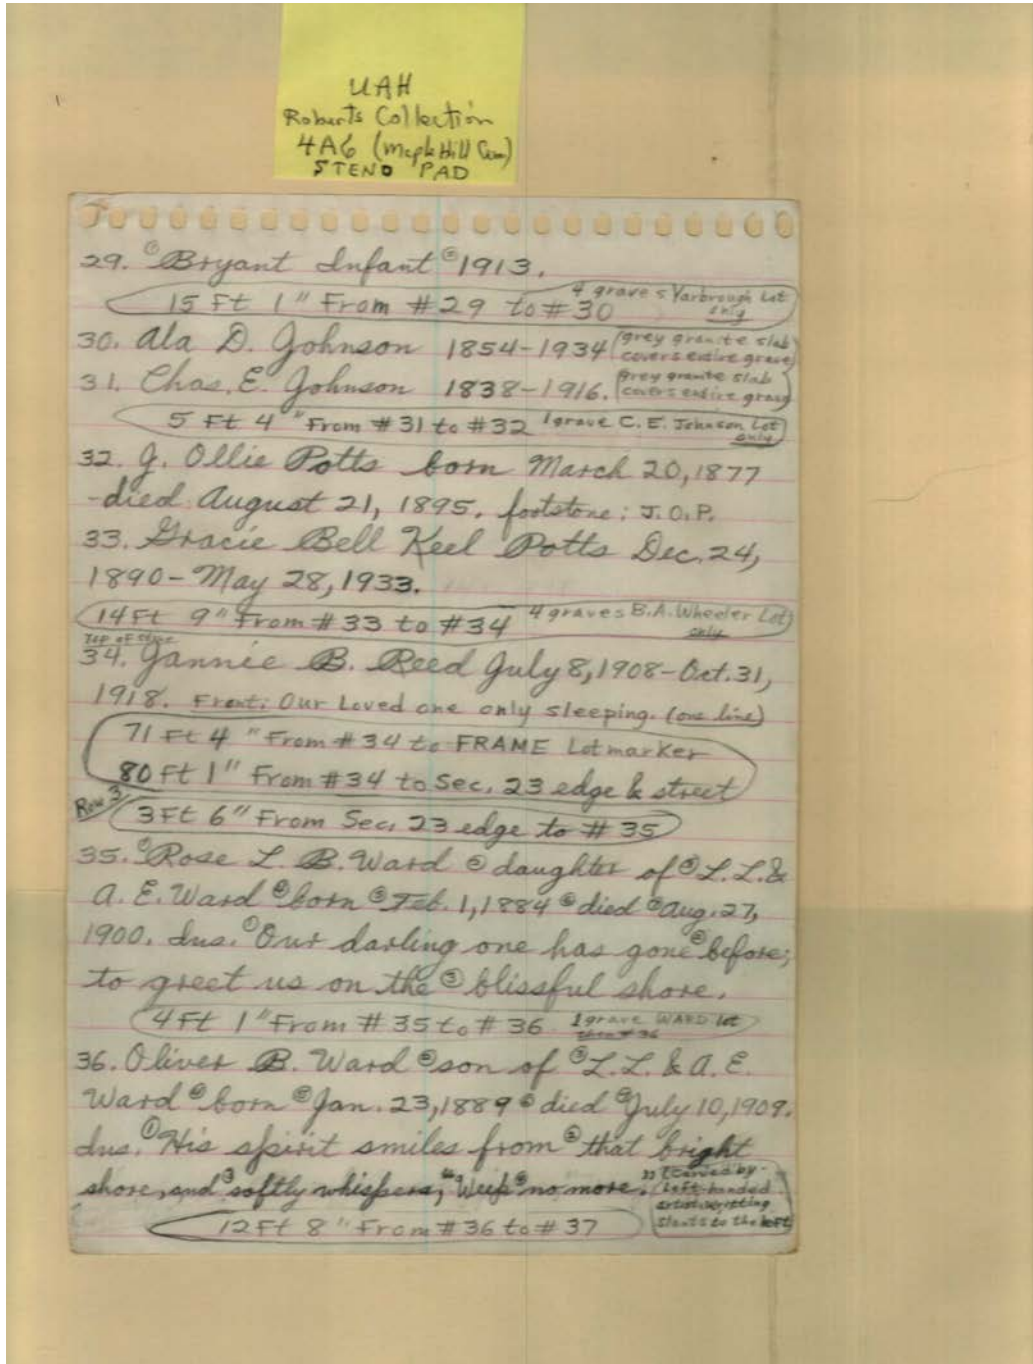 UAH
Roberts Collection
4A6 (Maple Hill Cem)
STENO PAD
29. ① Bryant Infant ② 1913.
15 Ft 1" From #29 to #30 4 graves Yarbrough Lot only
30. Ala D. Johnson 1854-1934 (grey granite slab covers entire grave)
31. Chas. E. Johnson 1838-1916. (grey granite slab covers entire grave)
5 Ft 4" From #31 to #32 1 grave C.E. Johnson Lot only
32. J. Ollie Potts born March 20, 1877
-died August 21, 1895. footstone: J.O.P.
33. Gracie Bell Keel Potts Dec. 24,
1890- May 28, 1933.
14 Ft 9" From #33 to #34 4 graves B.A. Wheeler Lot only
Top of
34. Jannie B. Reed July 8, 1908-Oct. 31,
1918. Front: Our Loved one only sleeping. (one line)
71 Ft 4" From #34 to FRAME Lotmarker
80 Ft 1" From #34 to Sec. 23 edge & street
Row 3
3 Ft 6" From Sec. 23 edge to #35
35. ① Rose L. B. Ward ② daughter of ③ L.L. &
A. E. Ward ④ born ⑤ Feb. 1, 1884 ⑥ died ⑦ Aug. 27,
1900. Ins. ① Our darling one has gone ② before;
to greet us on the ③ blissful shore.
4 Ft 1" From #35 to #36 1 grave WARD lot
36. Oliver B. Ward ② son of ③ L.L. & A. E.
Ward ④ born ⑤ Jan. 23, 1889 ⑥ died ⑦ July 10, 1909.
Ins. ① His spirit smiles from ② that bright
shore, and ③ softly whispers, "④ Weep ⑤ no more."
(carved by left-handed
artist writing
slants to the left)
12 Ft 8" From #36 to #37